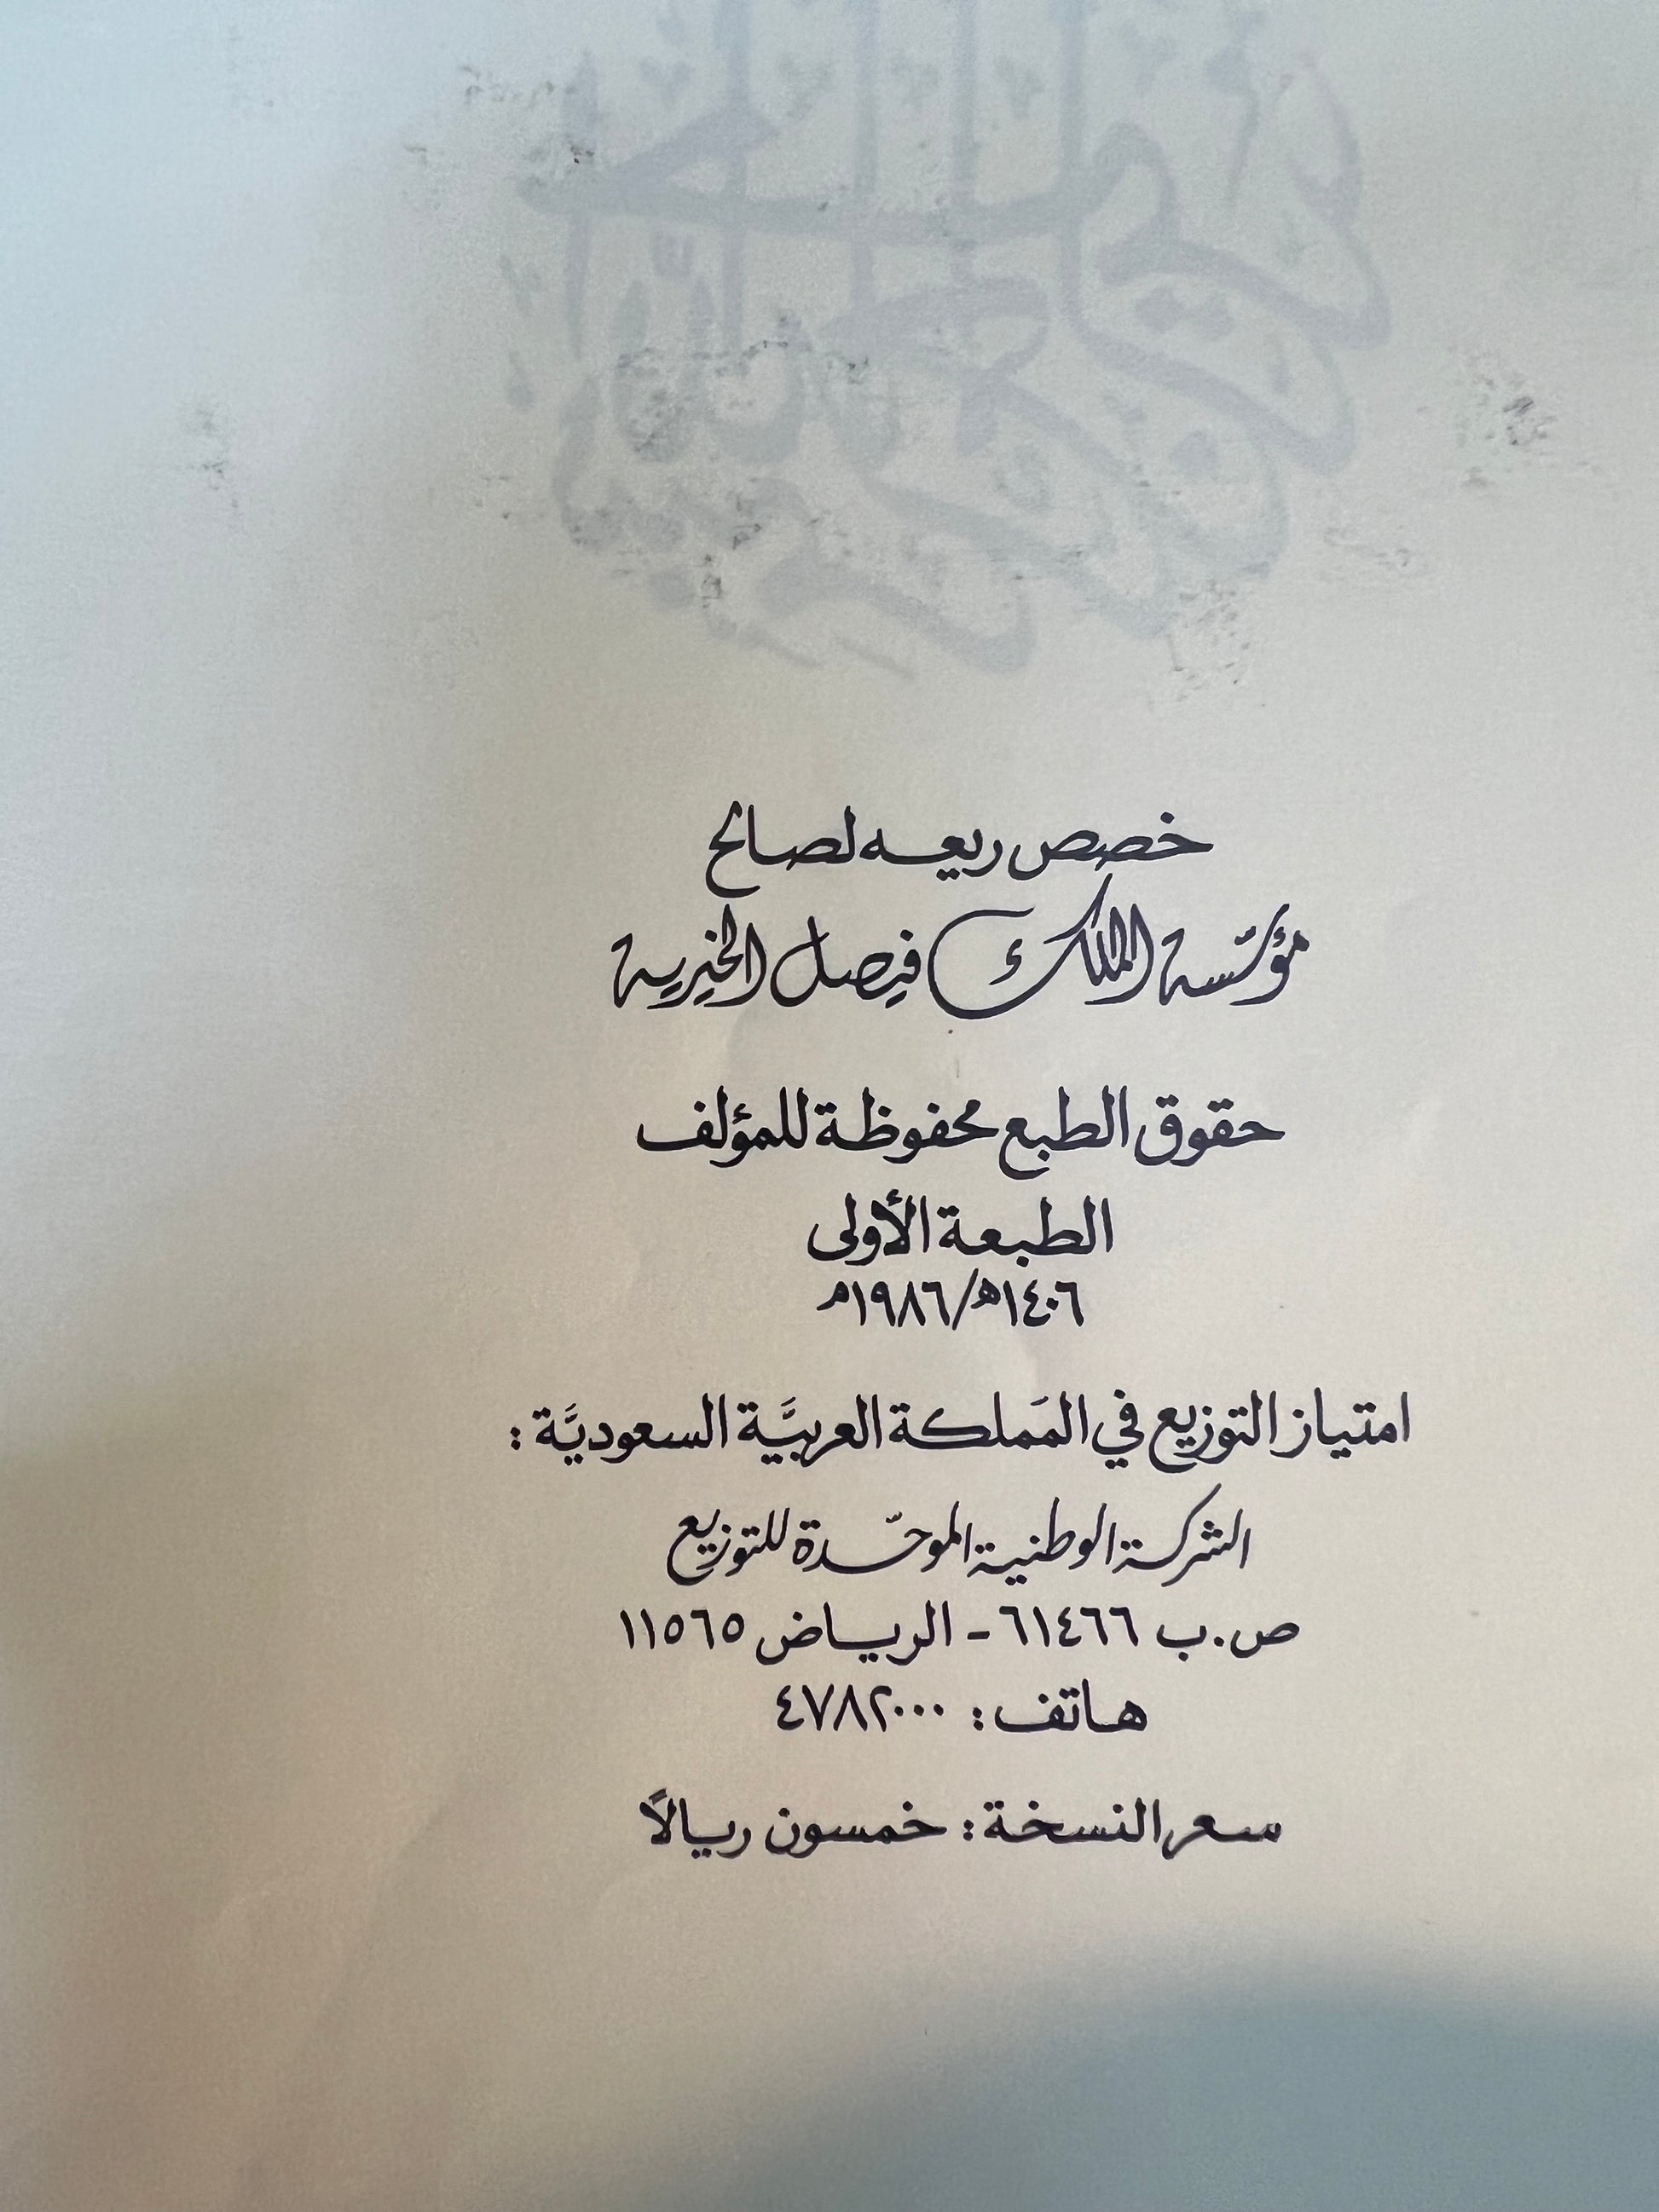 خصص ريعه لصالح
مؤسّسة الملك فيصل الخيرية
حقوق الطبع محفوظة للمؤلف
الطبعة الأولى
١٤٠٦ه‍/١٩٨٦م
امتياز التوزيع في المَملكة العربيَّة السعوديَّة :
الشركة الوطنية الموحّدة للتوزيع
ص.ب ٦١٤٦٦ - الرياض ١١٥٦٥
هاتف : ٤٧٨٢٠٠٠
سعر النسخة : خمسون ريالاً